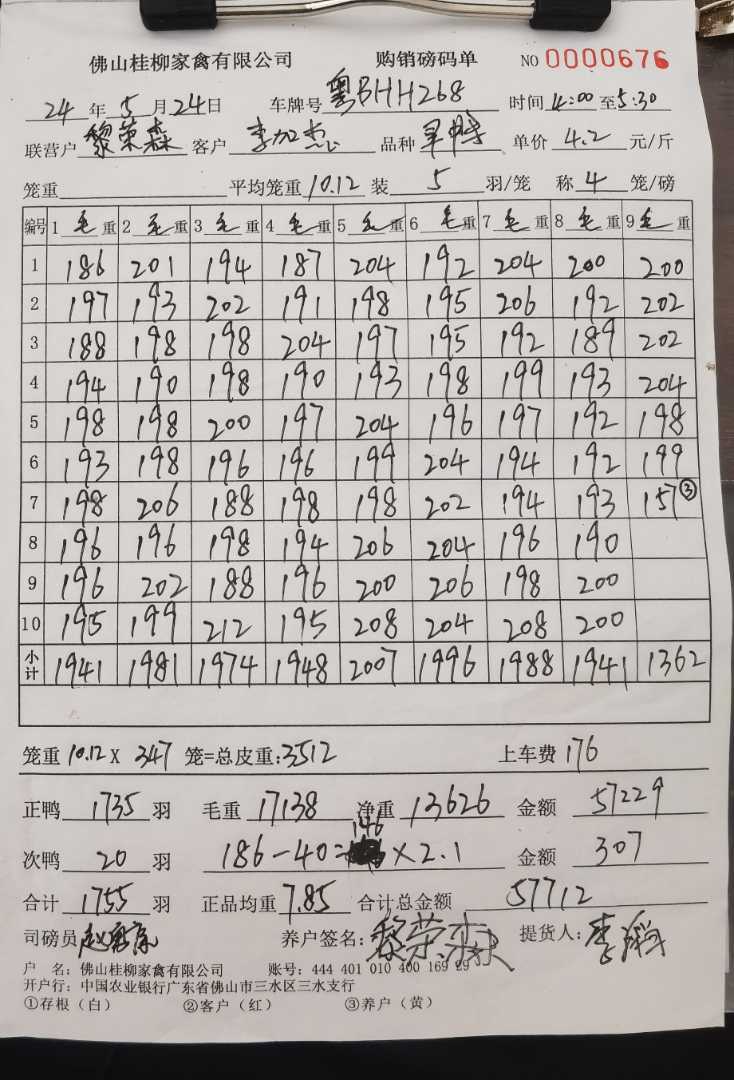 佛山桂柳家禽有限公司 购销磅码单 NO 0000676
24年5月24日 车牌号 粤BHH268 时间 4:00至5:30
联营户 黎荣森 客户 李加杰 品种 单价 4.2 元/斤
笼重 平均笼重 10.12 装 5 羽/笼 称 4 笼/磅
编号 1 毛重 2 毛重 3 毛重 4 毛重 5 毛重 6 毛重 7 毛重 8 毛重 9 毛重
1 186 201 194 187 204 192 204 200 200
2 197 193 202 191 198 195 206 192 202
3 188 198 198 204 197 195 192 189 202
4 194 190 198 190 193 198 199 193 204
5 198 198 200 197 204 196 197 192 198
6 193 198 196 196 199 204 194 192 199
7 198 206 188 198 198 202 194 193 157③
8 196 196 198 194 206 204 196 190
9 196 202 188 196 200 206 198 200
10 195 199 212 195 208 204 208 200
小计 1941 1981 1974 1948 2007 1996 1988 1941 1362
笼重 10.12 X 347 笼=总皮重:3512 上车费 176
正鸭 1735 羽 毛重 17138 净重 13626 金额 57229
次鸭 20 羽 186-40=146×2.1 金额 307
合计 1755 羽 正品均重 7.85 合计总金额 57712
司磅员 养户签名: 黎荣森 提货人: 李
户 名: 佛山桂柳家禽有限公司 账号: 444 401 010 400 169 29
开户行: 中国农业银行广东省佛山市三水区三水支行
①存根（白） ②客户（红） ③养户（黄）